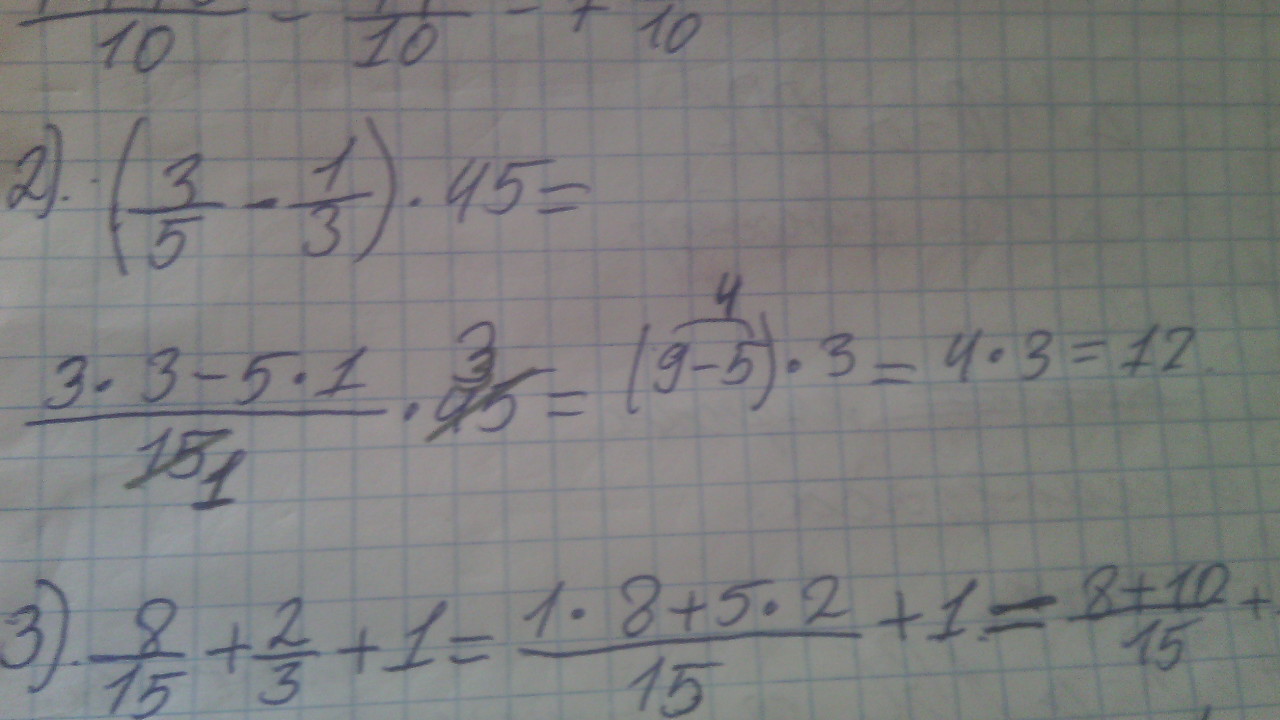 10 = 10 = 7 10
2). (3/5 - 1/3) · 45 =
4
3 · 3 - 5 · 1 / 15 1 · 45 3 = (9 - 5) · 3 = 4 · 3 = 12.
3). 8/15 + 2/3 + 1 = 1 · 8 + 5 · 2 / 15 + 1 = 8 + 10 / 15 +